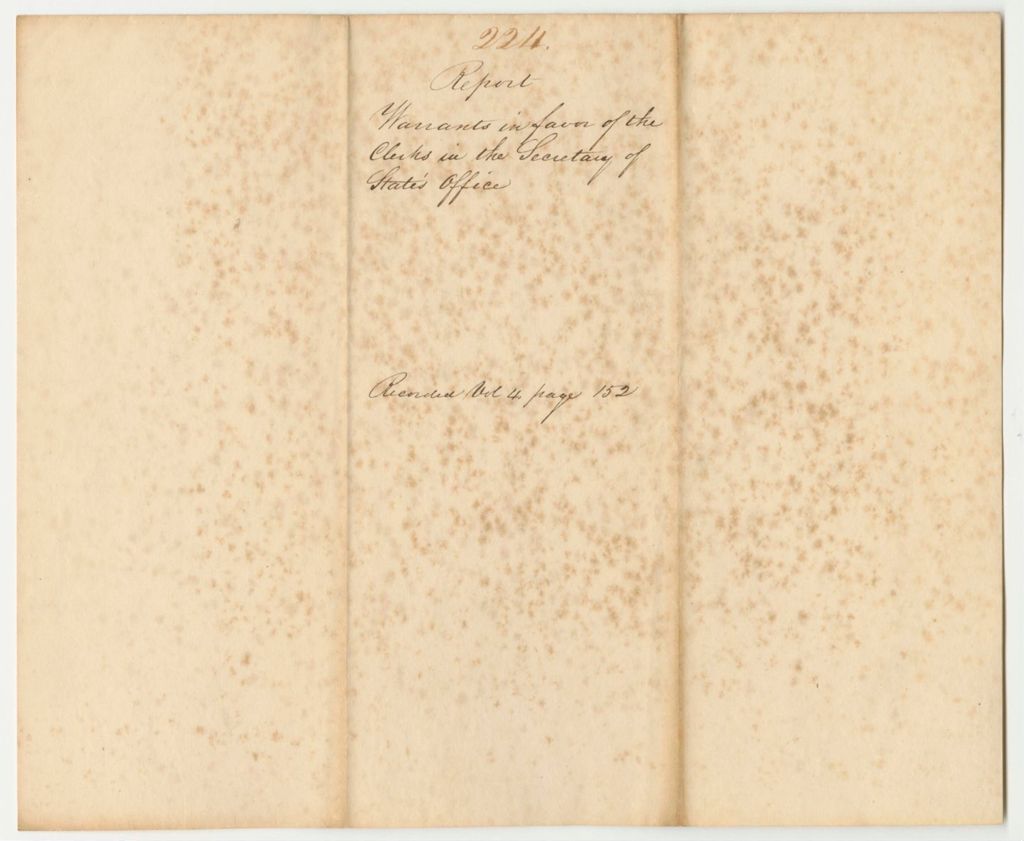 224.
Report
Warrants in favor of the
Clerks in the Secretary of
State's Office
Recorded Vol 4. page 152